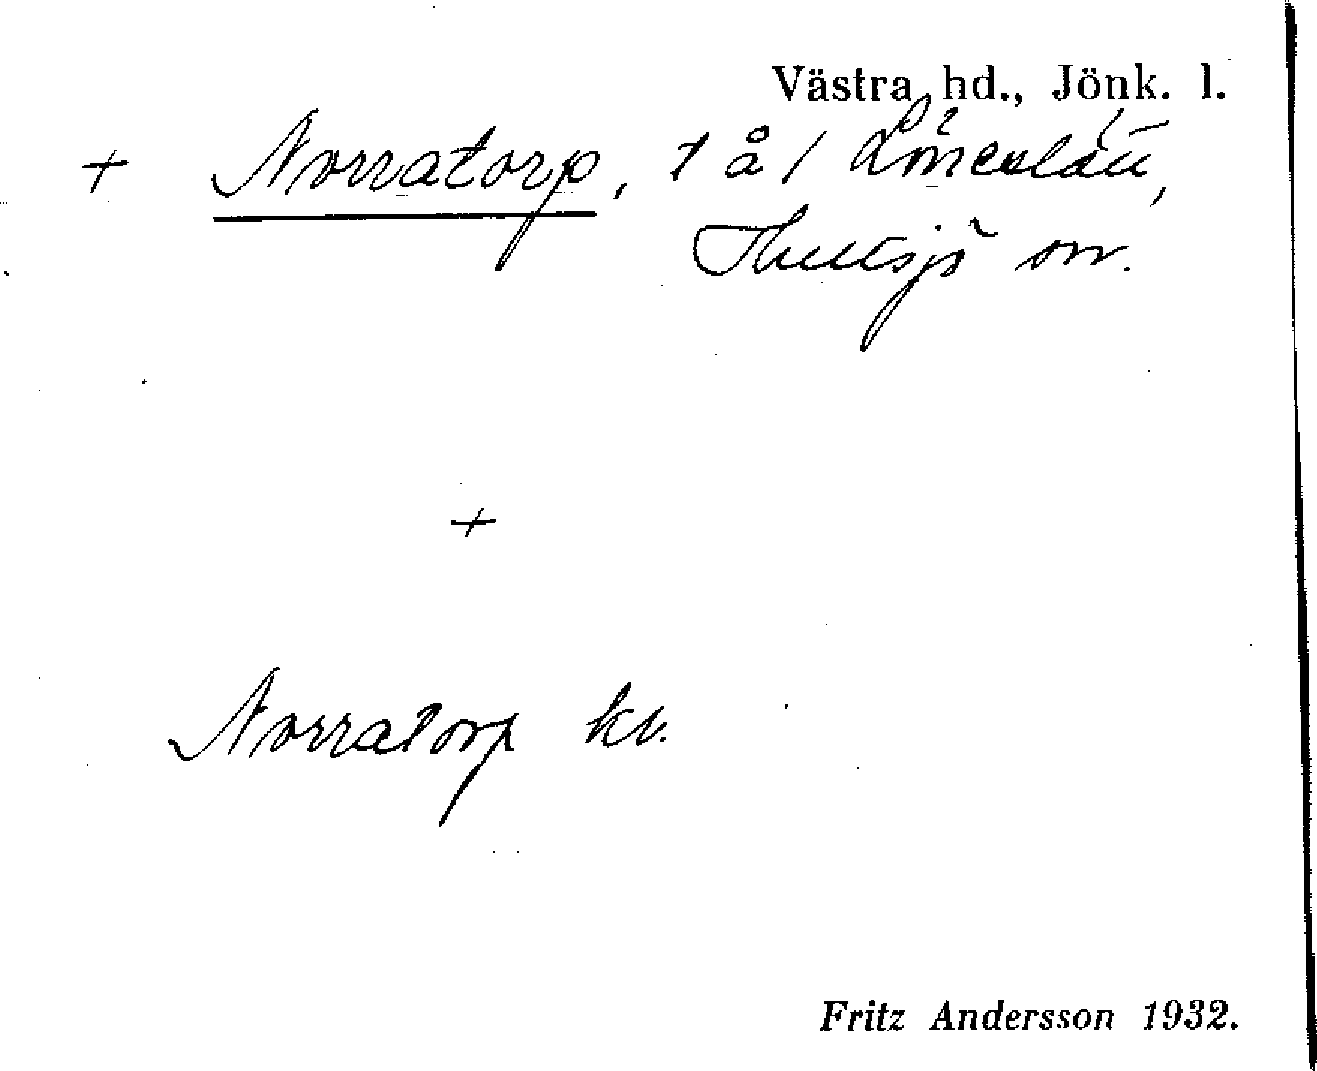 Västra hd., Jönk. l.
+ Norratorp, t å / Lönneslätt,
Hultsjö sn.
+
Norratorp kv.
Fritz Andersson 1932.